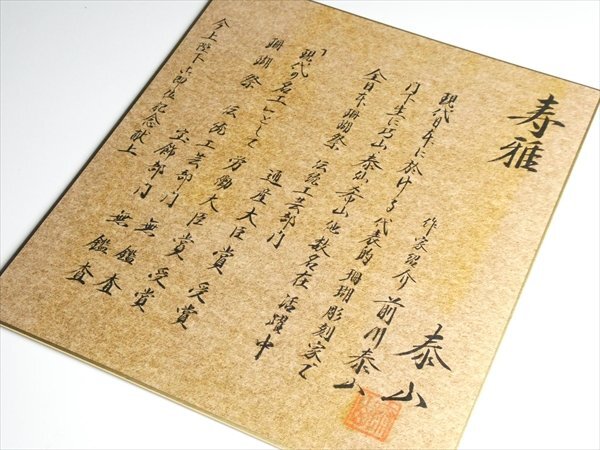 寿雅
泰山
作家紹介 前川泰山
現代日本に於ける代表的珊瑚彫刻家で
門下生に巧山 泰仙 秀山他数名在 活躍中
全日本珊瑚祭 伝統工芸部門
通産大臣賞 受賞
「現代の名工」として 労働大臣賞 受賞
珊瑚祭 伝統工芸部門 無鑑査
宝飾部門 無鑑査
今上陛下御即位記念献上